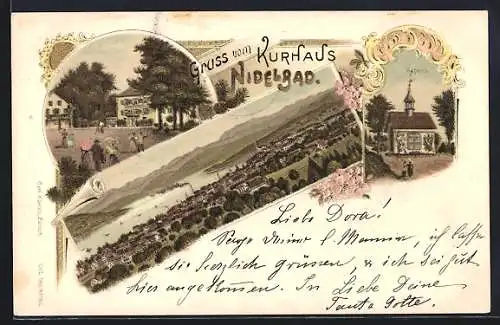 Gruss vom KURHAUS
NIDELBAD.
Liebe Dora!
Sage Deiner l. Mamma, ich lasse
sie herzlich grüssen, & ich sei gut
hier angekommen. In Liebe Deine
Tante Gotte.